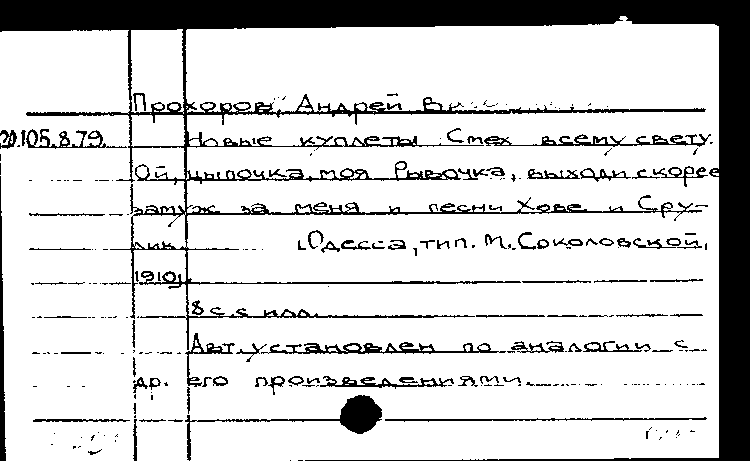 Прохоров, Андрей
20105.8.79. Новые куплеты Смех всему свету.
Ой, цыпочка, моя Рыбочка, выходи скорее
замуж за меня и песни Хове и Сру-
лик. [Одесса, тип. М. Соколовской,
1910].
8 с. с илл.
Авт. установлен по аналогии с
др. его произведениями.